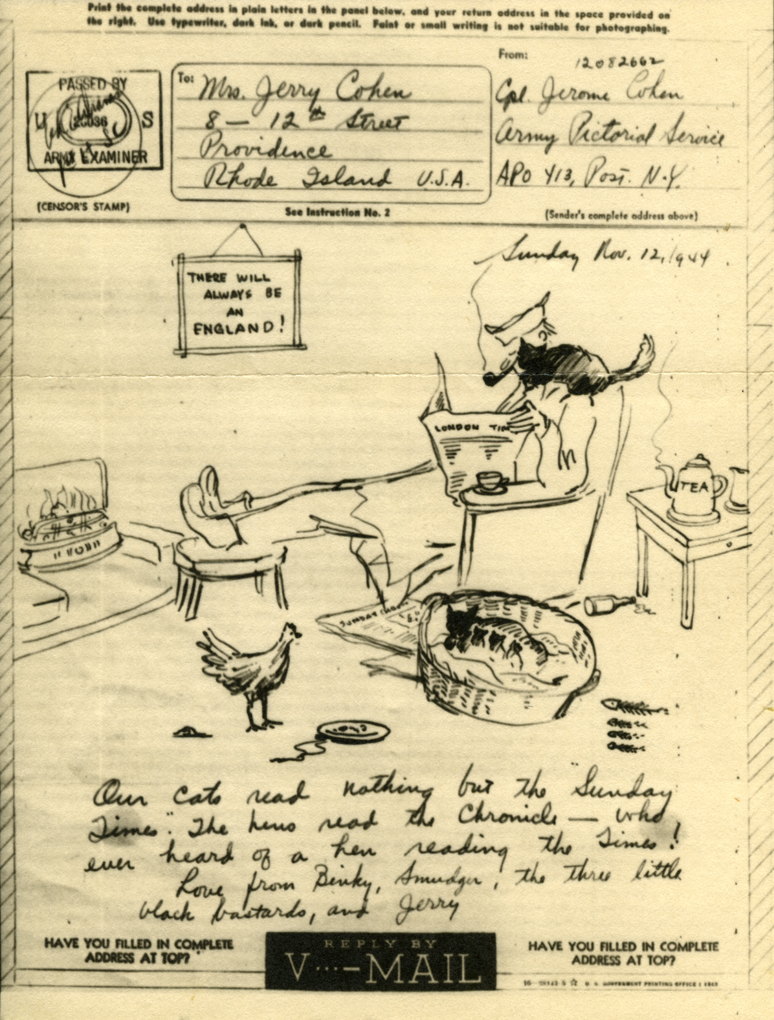 Print the complete address in plain letters in the panel below, and your return address in the space provided on
the right. Use typewriter, dark ink, or dark pencil. Faint or small writing is not suitable for photographing.
PASSED BY
U S
ARMY EXAMINER
(CENSOR'S STAMP)
To:
Mrs. Jerry Cohen
8 – 12th Street
Providence
Rhode Island U.S.A.
See Instruction No. 2
From:
12082662
Cpl. Jerome Cohen
Army Pictorial Service
APO 413, Post. N.Y.
(Sender's complete address above)
Sunday Nov. 12, 1944
THERE WILL
ALWAYS BE
AN
ENGLAND!
LONDON TIM
TEA
SUNDAY
Our cats read nothing but the "Sunday
Times". The hens read the Chronicle — who
ever heard of a hen reading the Times!
Love from Binky, Smudger, the three little
black bastards, and Jerry
HAVE YOU FILLED IN COMPLETE
ADDRESS AT TOP?
REPLY BY
V···—MAIL
HAVE YOU FILLED IN COMPLETE
ADDRESS AT TOP?
U. S. GOVERNMENT PRINTING OFFICE : 1943